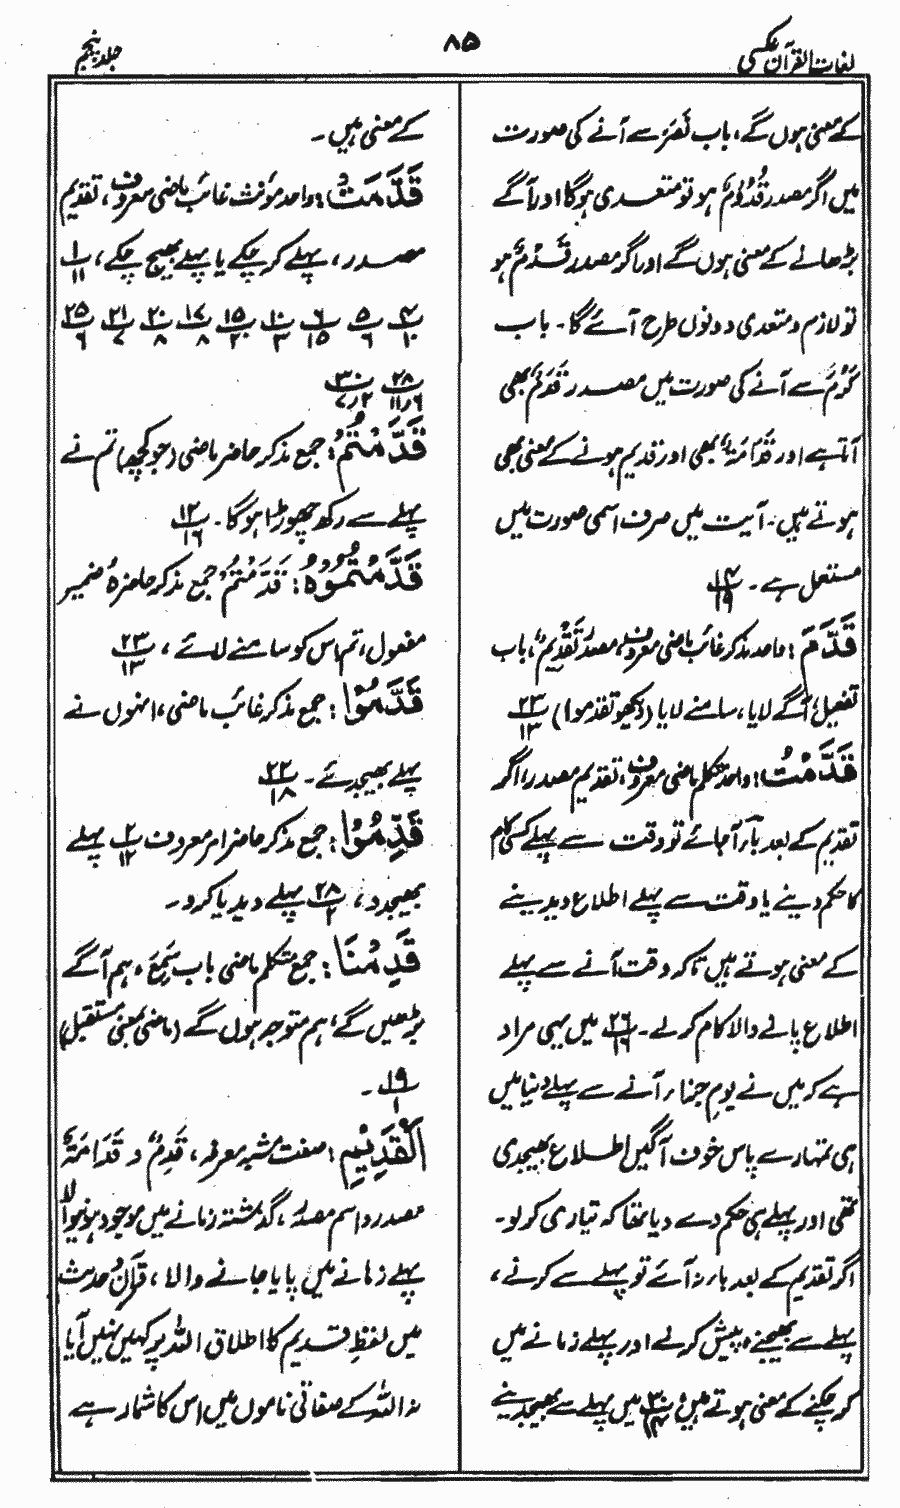 لغات القرآن عکسی
۸۵
جلد پنجم
کے معنی ہوں گے، باب نَصَرَ سے آنے کی صورت
میں اگر مصدر قُدُوْمٌ ہو تو متعدی ہوگا اور آگے
بڑھانے کے معنی ہوں گے اور اگر مصدر قَدْمٌ ہو
تو لازم و متعدی دونوں طرح آئے گا۔ باب
کَرُمَ سے آنے کی صورت میں مصدر قَدَمٌ بھی
آتا ہے اور قَدَامَۃٌ بھی اور قدیم ہونے کے معنی بھی
ہوتے ہیں۔ آیت میں صرف اسمی صورت میں
مستعمل ہے۔ ۱۴/۱۹
قَدَّمَ : واحد مذکر غائب ماضی معروف، مصدر تَقْدِیْمٌ، باب
تفعیل، آگے لایا، سامنے لایا (دیکھو تقدموا) ۲۳/۱۳
قَدَّمْتُ : واحد متکلم ماضی معروف، تقدیم مصدر، اگر
تقدیم کے بعد بآء آجائے تو وقت سے پہلے کسی کام
کا حکم دینے یا وقت سے پہلے اطلاع دیدینے
کے معنی ہوتے ہیں تاکہ وقت آنے سے پہلے
اطلاع پانے والا کام کر لے۔ ۲۶/۱۶ میں یہی مراد
ہے کہ میں نے یوم جزاء آنے سے پہلے دنیا میں
ہی تمہارے پاس خوف آگیں اطلاع بھیجدی
تھی اور پہلے ہی حکم دے دیا تھا کہ تیاری کر لو۔
اگر تقدیم کے بعد باء نہ آئے تو پہلے سے کرنے،
پہلے سے بھیجنے، پیش کرنے اور پہلے زمانے میں
کر چکنے کے معنی ہوتے ہیں، ۳۰/۱۴ میں پہلے سے بھیجدینے
کے معنی ہیں۔
قَدَّمَتْ : واحد مونث غائب ماضی معروف، تقدیم
مصدر، پہلے کر چکے یا پہلے بھیج چکے، ۱/۱۱
۴/۱۰ ۵/۶ ۶/۱۵ ۱۰/۳ ۱۵/۲۰ ۱۷/۸ ۲۰/۸ ۲۱/۷ ۲۵/۶
۲۸/۱۱،۶ ۳۰/۷،۲
قَدَّمْتُمْ : جمع مذکر حاضر ماضی (جو کچھ) تم نے
پہلے سے رکھ چھوڑا ہوگا۔ ۱۲/۱۶
قَدَّمْتُمُوْهُ : قَدَّمْتُمْ جمع مذکر حاضر ہُ ضمیر
مفعول، تم اس کو سامنے لائے، ۲۳/۱۳
قَدَّمُوْا : جمع مذکر غائب ماضی، انہوں نے
پہلے بھیجدئے۔ ۲۲/۱۸
قَدِّمُوْا : جمع مذکر حاضر امر معروف ۲/۱۲ پہلے
بھیجدو، ۲۸/۲ پہلے دیدیا کرو۔
قَدِمْنَا : جمع متکلم ماضی باب سَمِعَ، ہم آگے
بڑھیں گے، ہم متوجہ ہوں گے (ماضی بمعنی مستقبل)
۱۹/۱ -
اَلْقَدِیْمِ : صفت مشبہ معرفہ، قَدِمٌ و قَدَامَۃٌ
مصدر و اسم مصدر، گذشتہ زمانے میں موجود ہونیوالا
پہلے زمانے میں پایا جانے والا، قرآن و حدیث
میں لفظِ قدیم کا اطلاق اللہ پر کہیں نہیں آیا
نہ اللہ کے صفاتی ناموں میں اس کا شمار ہے